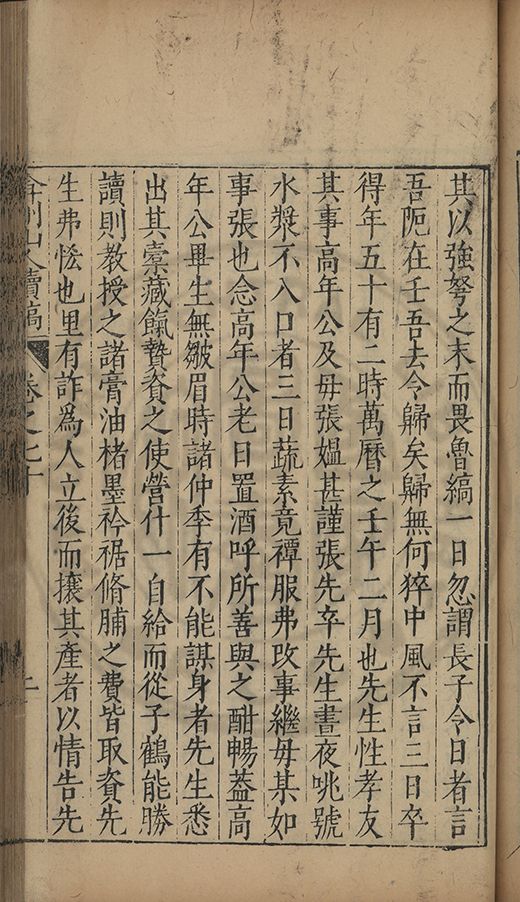 其以強弩之末而畏魯縞一日忽謂長子令日者言
吾阨在壬吾去令歸矣歸無何猝中風不言三日卒
得年五十有二時萬曆之壬午二月也先生性孝友
其事高年公及母張媼甚謹張先卒先生晝夜咷號
水漿不入口者三日蔬素竟禫服弗改事繼母某如
事張也念高年公老日置酒呼所善與之酣暢葢高
年公畢生無皺眉時諸仲季有不能謀身者先生悉
出其橐藏餼贄資之使營什一自給而從子鶴能勝
讀則教授之諸膏油楮墨衿裾脩脯之費皆取資先
生弗恡也里有詐爲人立後而攘其產者以情告先
弇州山人續稿 卷之七十 二